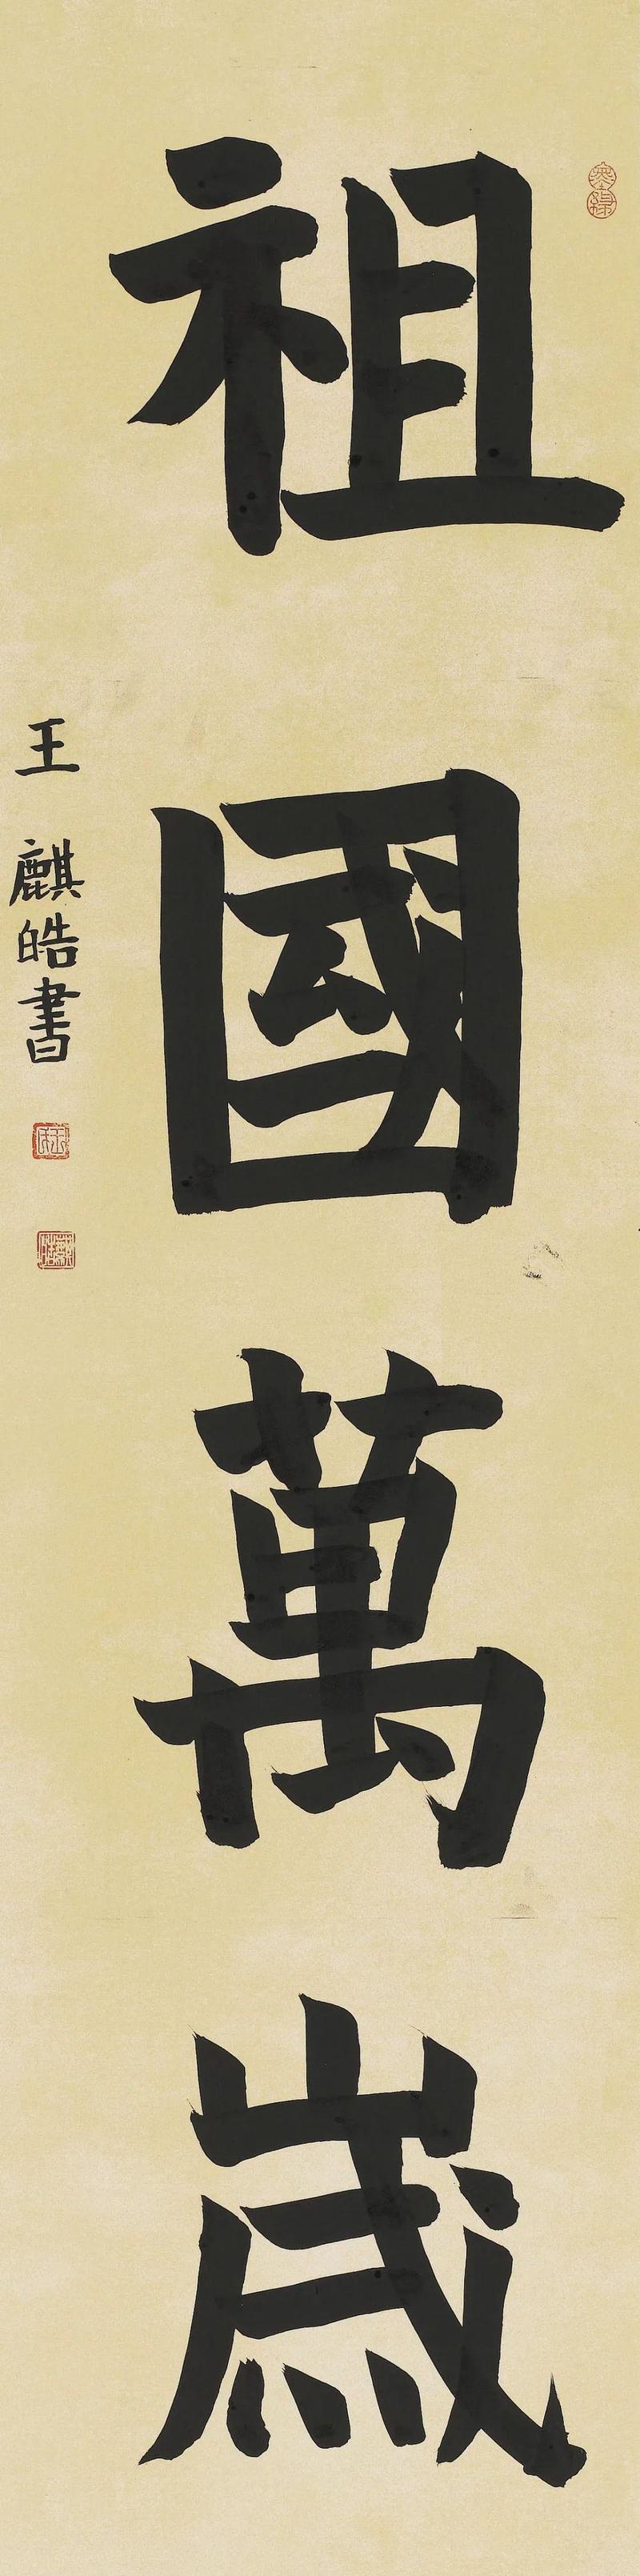 祖國萬歲
王麒皓書